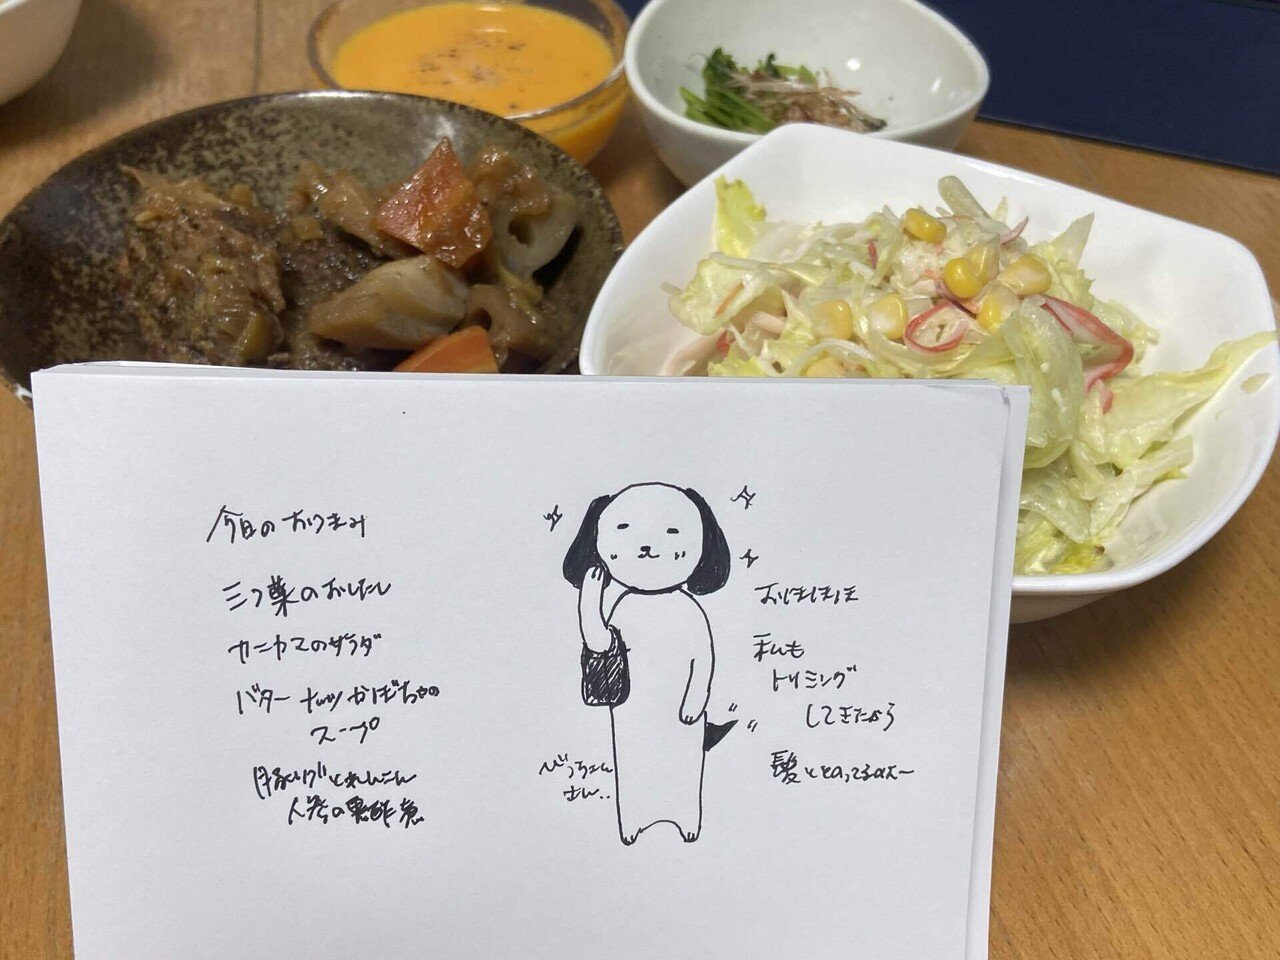 今日のおつまみ
三つ葉のおひたし
カニカマのサラダ
バターナッツかぼちゃの
スープ
豚バラとれんこん
人参の黒酢煮
おほほほ
私も
トリミング
してきたから
髪ととのってるわよ〜
さん..